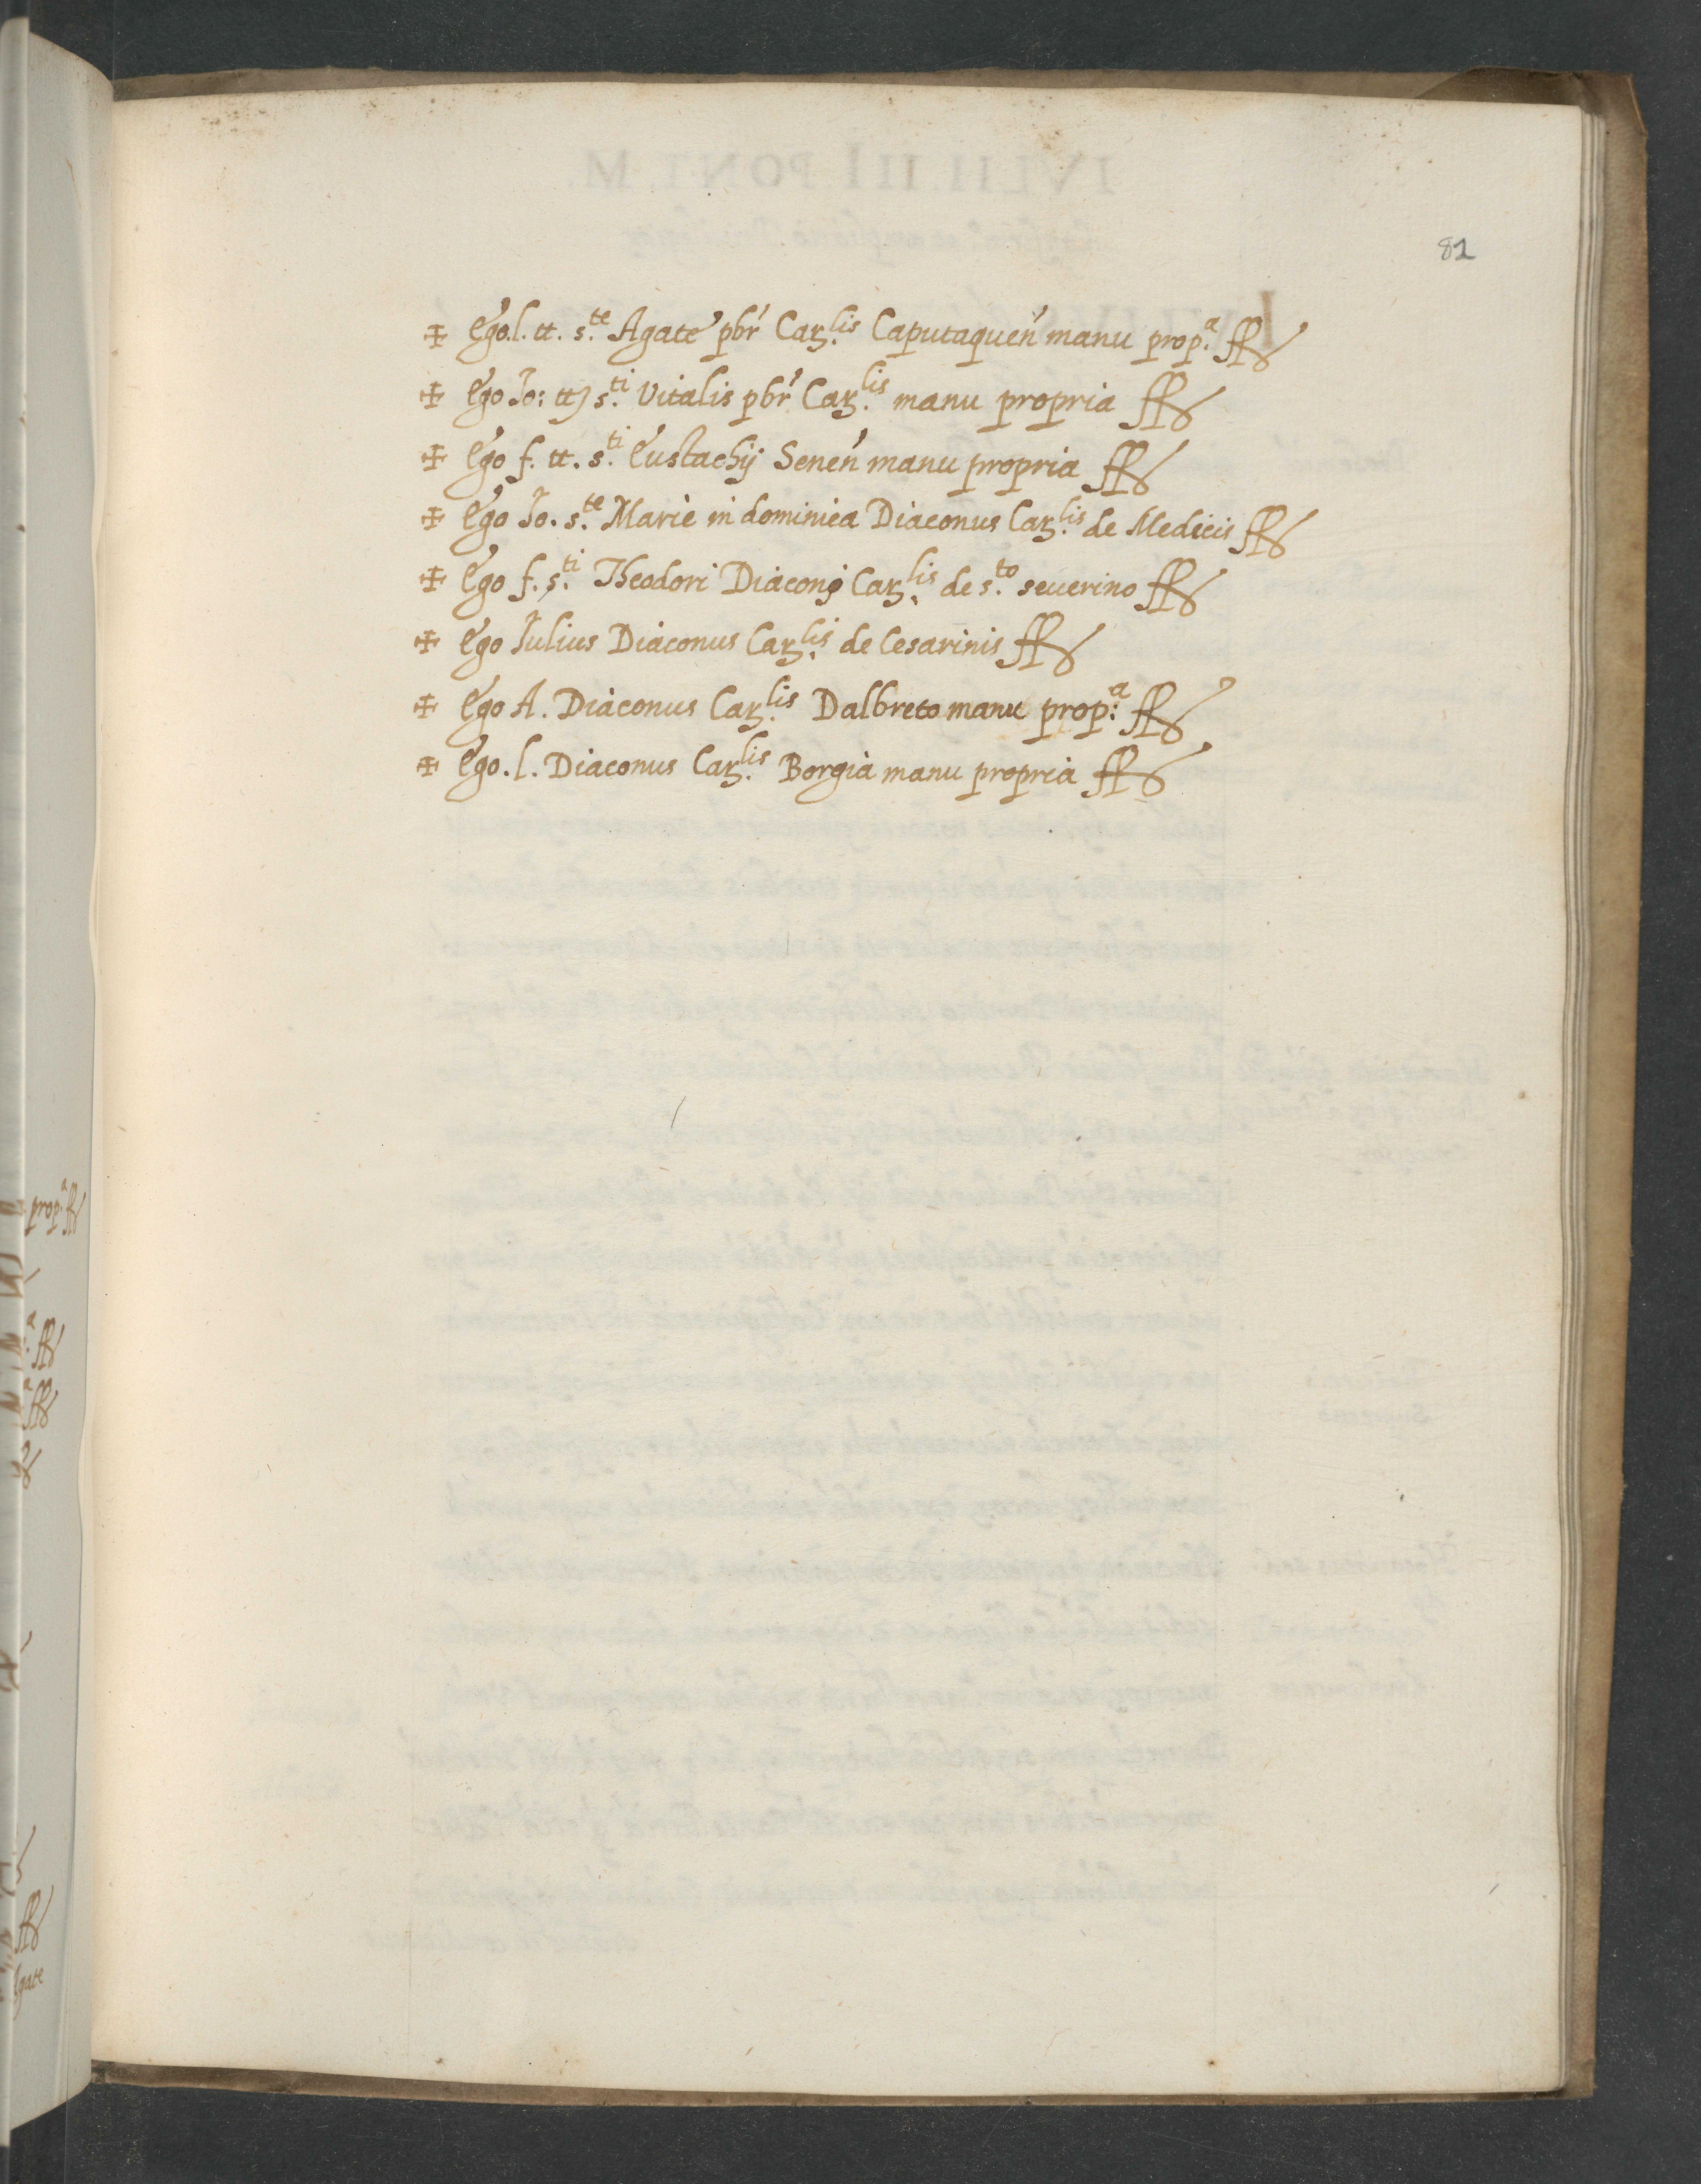 81
✠ Ego. l. tt. s.te Agate pbr' Car.lis Caputaquen' manu prop.a
✠ Ego Jo: tt s.ti Vitalis pbr' Car.lis manu propria
✠ Ego f. tt. s.ti Eustachij Senen' manu propria
✠ Ego Jo. s.te Marie in dominica Diaconus Car.lis de Medicis
✠ Ego f. s.ti Theodori Diaconus Car.lis de s.to seuerino
✠ Ego Julius Diaconus Car.lis de Cesarinis
✠ Ego A. Diaconus Car.lis Dalbreto manu prop:a
✠ Ego. l. Diaconus Car.lis Borgia manu propria